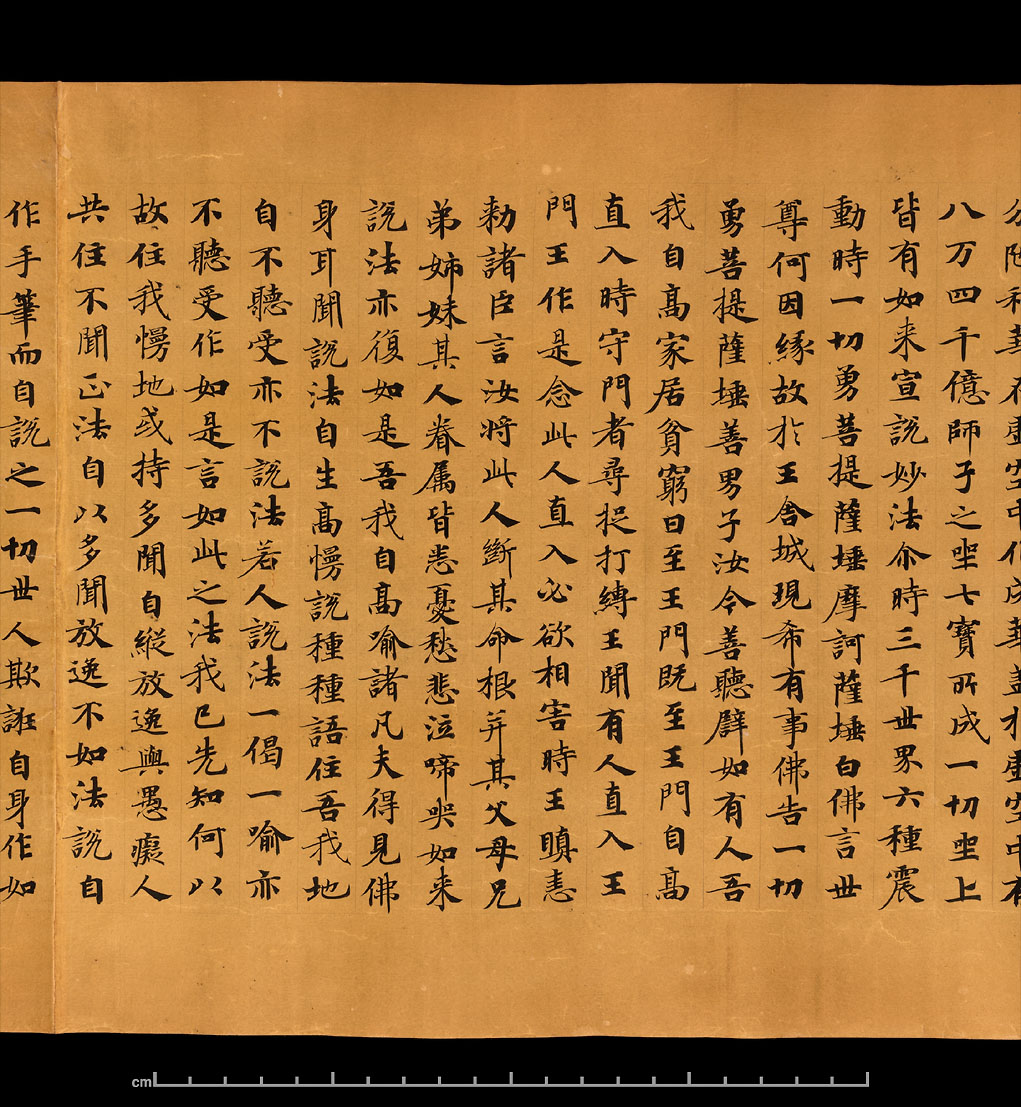 華在虚空中作成華盖於虚空中有
八万四千億師子之㘴七寶所成一切㘴上
皆有如来宣說妙法尒時三千世界六種震
動時一切勇菩提薩埵摩訶薩埵白佛言世
尊何因緣故於王舍城現希有事佛告一切
勇菩提薩埵善男子汝今善聽辟如有人吾
我自高家居貧窮日至王門既至王門自高
直入時守門者尋捉打縛王聞有人直入王
門王作是念此人直入必欲相害時王瞋恚
勑諸臣言汝將此人斷其命根并其父母兄
弟姉妹其人眷属皆悉憂愁悲泣啼哭如来
說法亦復如是吾我自高喻諸凡夫得見佛
身耳聞說法自生高慢說種種語住吾我地
自不聽受亦不說法若人說法一偈一喻亦
不聽受作如是言如此之法我已先知何以
故住我慢地或持多聞自縱放逸與愚癡人
共住不聞正法自以多聞放逸不如法說自
作手筆而自說之一切世人欺誑自身作如
cm